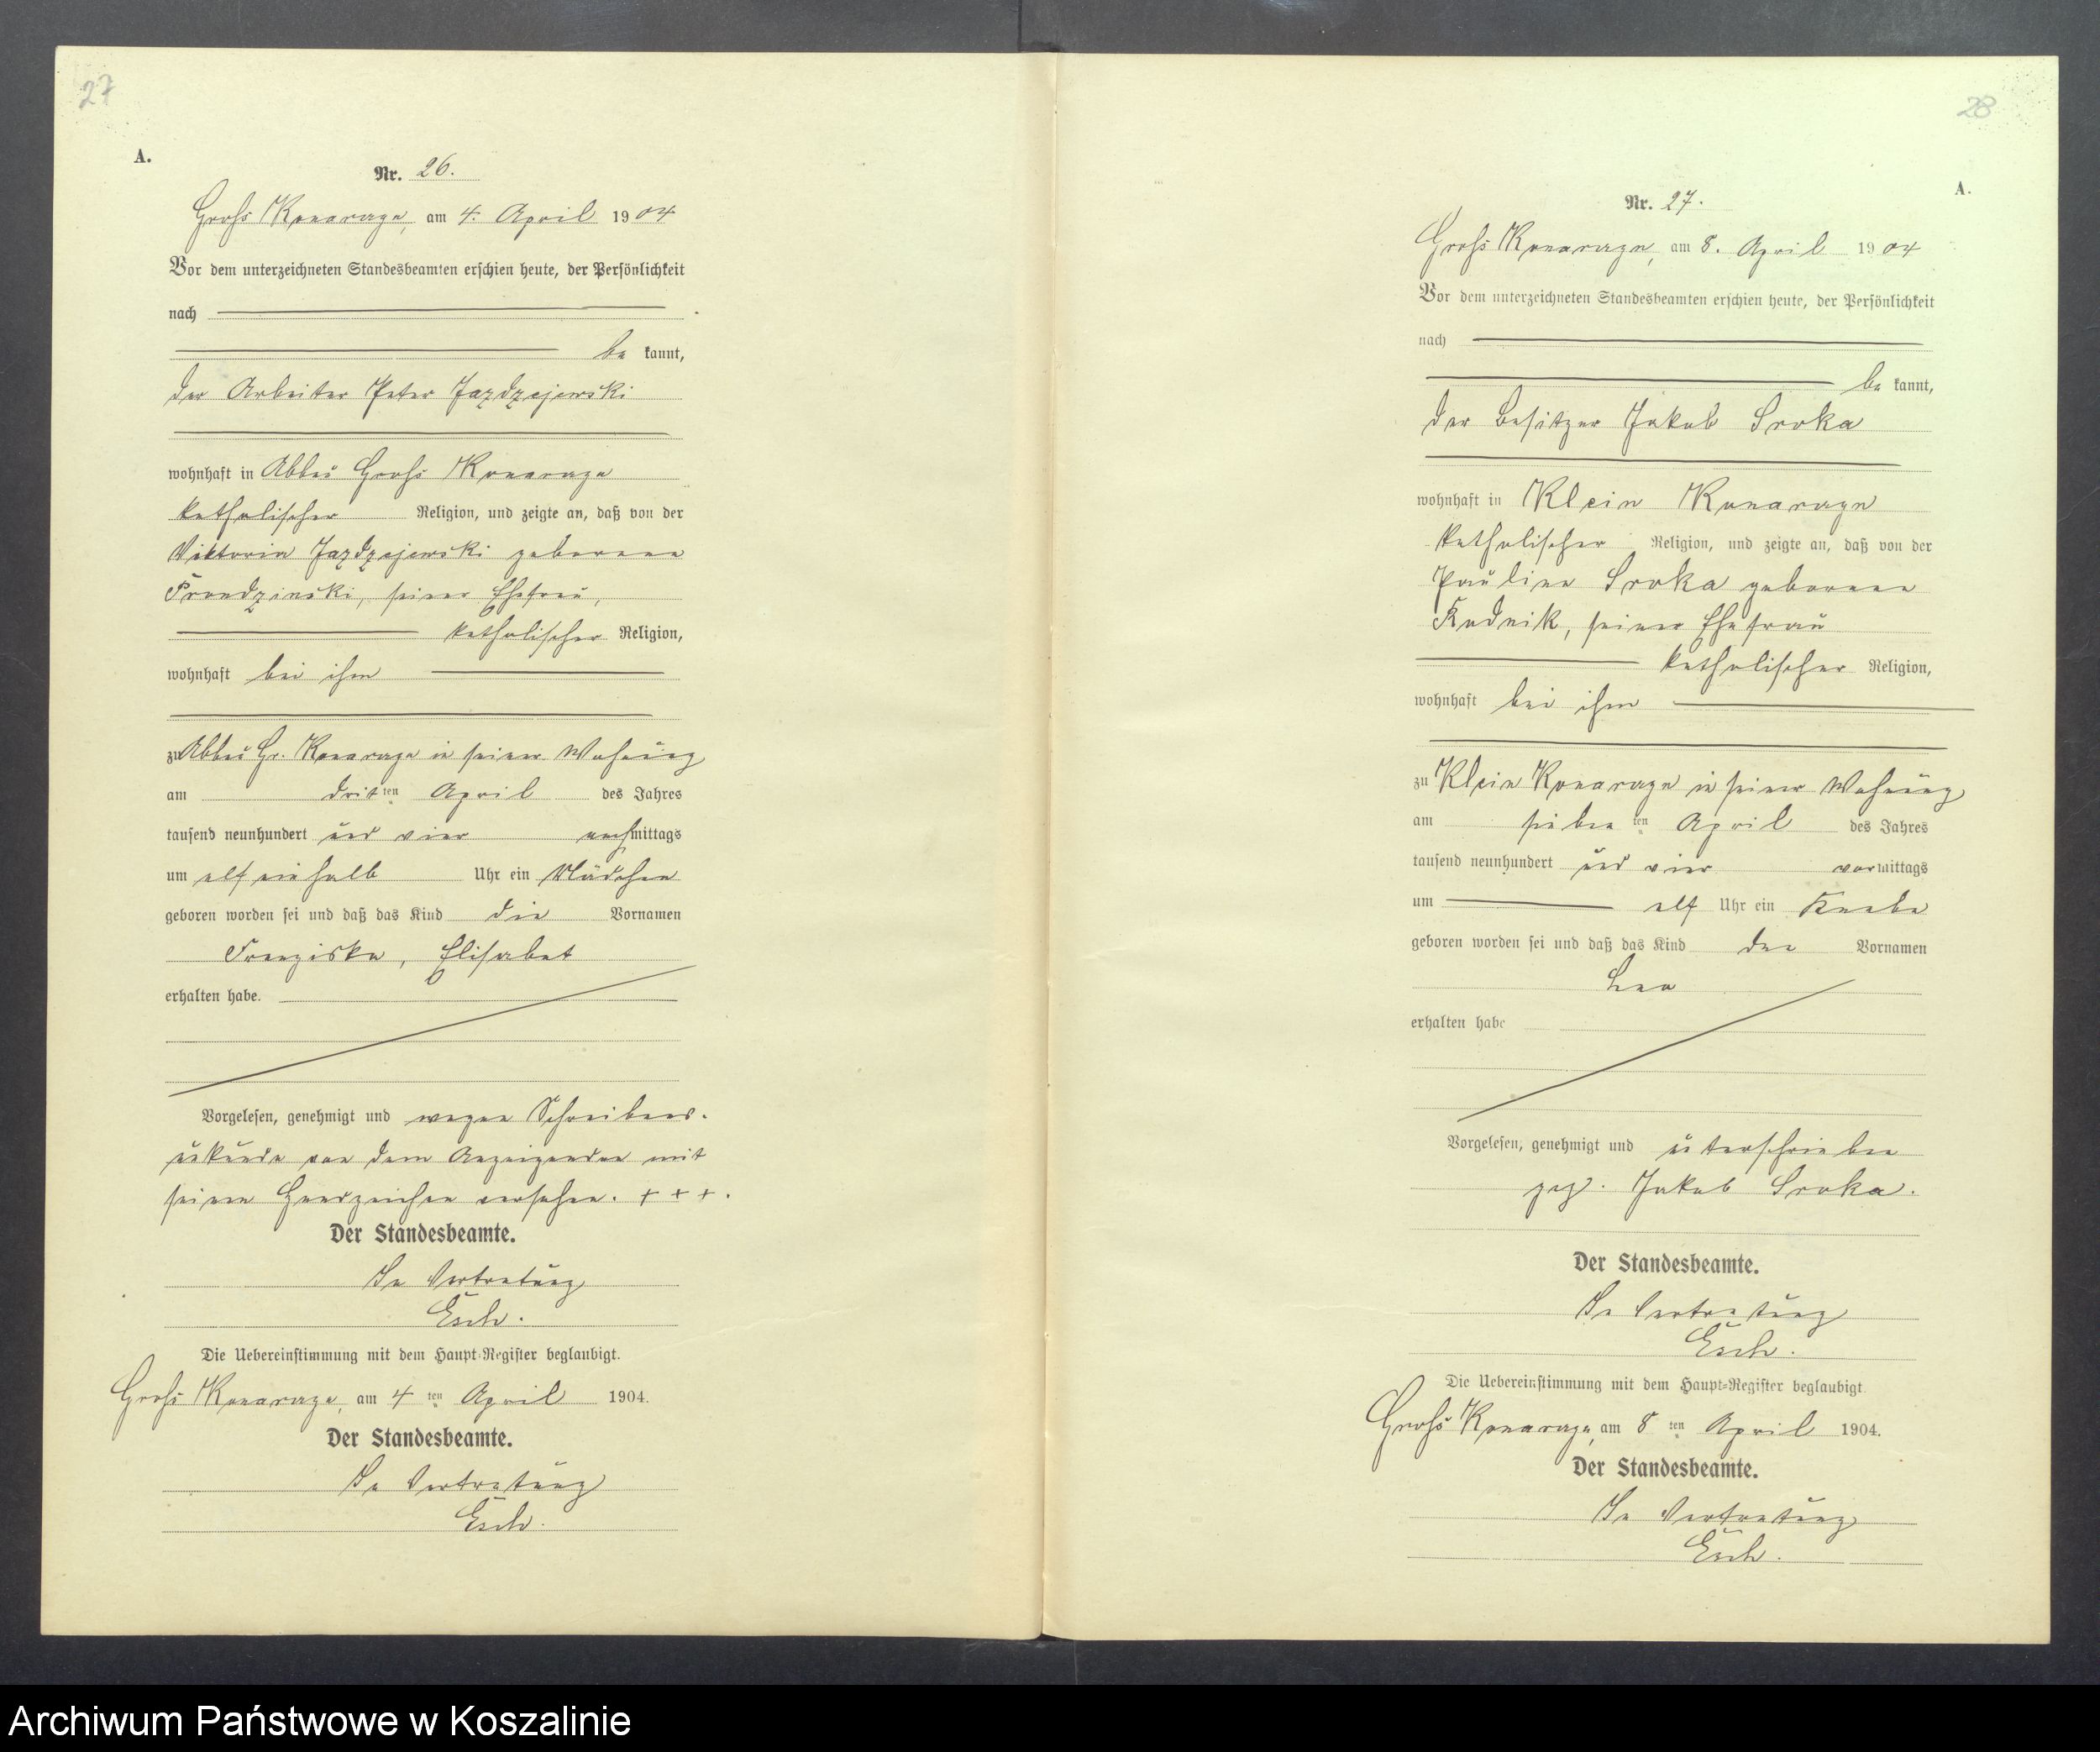 27
A.
Nr. 26.
Groß Konarczyn, am 4. April 1904
Vor dem unterzeichneten Standesbeamten erschien heute, der Persönlichkeit
nach
be kannt,
der Arbeiter Peter Jazdzejewski
wohnhaft in Abbau Groß Konarczyn
katholischer Religion, und zeigte an, daß von der
Viktoria Jazdzejewski geborene
seiner Ehefrau,
katholischer Religion,
wohnhaft bei ihm
zu Abbau Gr. Konarczyn in seiner Wohnung
am dritten April des Jahres
tausend neunhundert und vier nachmittags
um elf ein halb Uhr ein Mädchen
geboren worden sei und daß das Kind die Vornamen
Franziska, Elisabet
erhalten habe.
Vorgelesen, genehmigt und wegen Schreibens-
unkunde von dem Anzeigenden mit
seinem Handzeichen versehen. + + +.
Der Standesbeamte.
In Vertretung
Esch.
Die Uebereinstimmung mit dem Haupt-Register beglaubigt.
Groß Konarczyn, am 4 ten April 1904.
Der Standesbeamte.
In Vertretung
Esch.
28
A.
Nr. 27.
Groß Konarczyn, am 8. April 1904
Vor dem unterzeichneten Standesbeamten erschien heute, der Persönlichkeit
nach
be kannt,
der Besitzer Jakob Sroka
wohnhaft in Klein Konarczyn
katholischer Religion, und zeigte an, daß von der
Pauline Sroka geborene
Rudnik, seiner Ehefrau
katholischer Religion,
wohnhaft bei ihm
zu Klein Konarczyn in seiner Wohnung
am sieben ten April des Jahres
tausend neunhundert und vier vormittags
um elf Uhr ein Knabe
geboren worden sei und daß das Kind den Vornamen
Leo
erhalten habe
Vorgelesen, genehmigt und unterschrieben
gez. Jakob Sroka.
Der Standesbeamte.
In Vertretung
Esch.
Die Uebereinstimmung mit dem Haupt-Register beglaubigt
Groß Konarczyn, am 8 ten April 1904.
Der Standesbeamte.
In Vertretung
Esch.
Archiwum Państwowe w Koszalinie